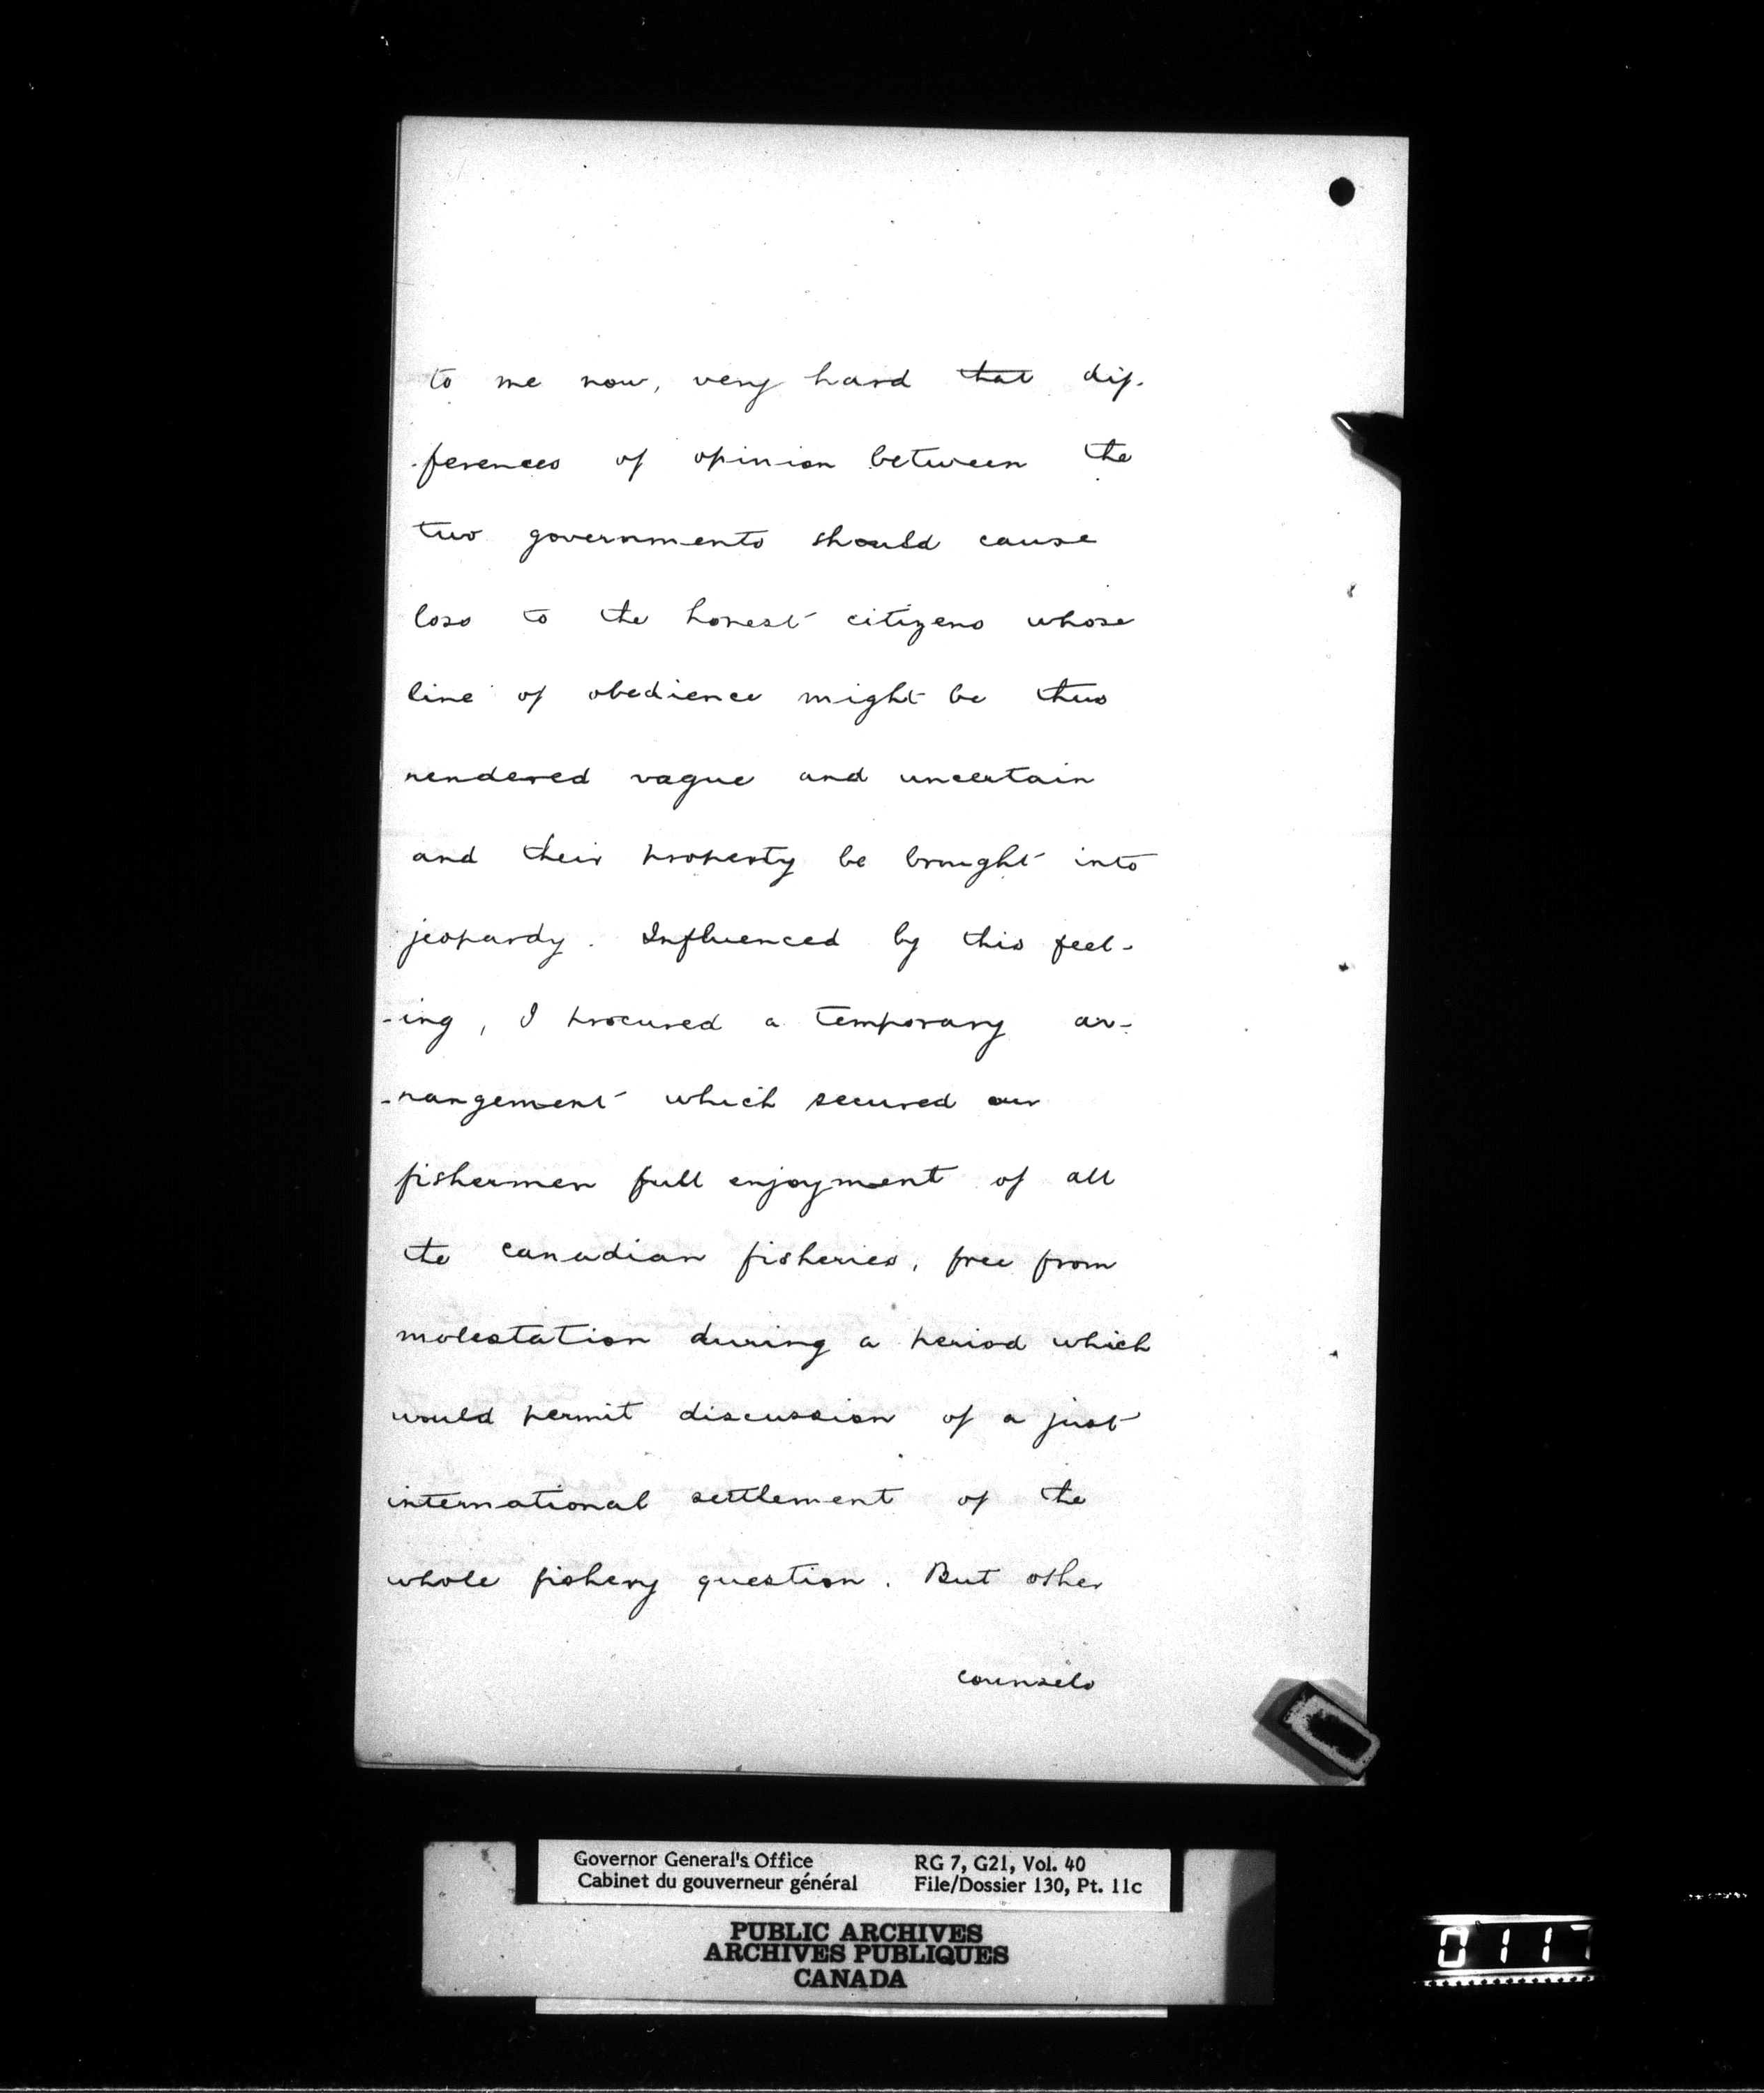 to me now, very hard that dif-
-ferences of opinion between the
two governments should cause
loss to the honest citizens whose
line of obedience might be thus
rendered vague and uncertain
and their property be brought into
jeopardy. Influenced by this feel-
-ing, I procured a temporary ar-
-rangement which secured our
fishermen full enjoyment of all
the canadian fisheries, free from
molestation during a period which
would permit discussion of a just
international settlement of the
whole fishery question. But other
counsels
Governor General's Office
Cabinet du gouverneur général
RG 7, G21, Vol. 40
File/Dossier 130, Pt. 11c
PUBLIC ARCHIVES
ARCHIVES PUBLIQUES
CANADA
0117